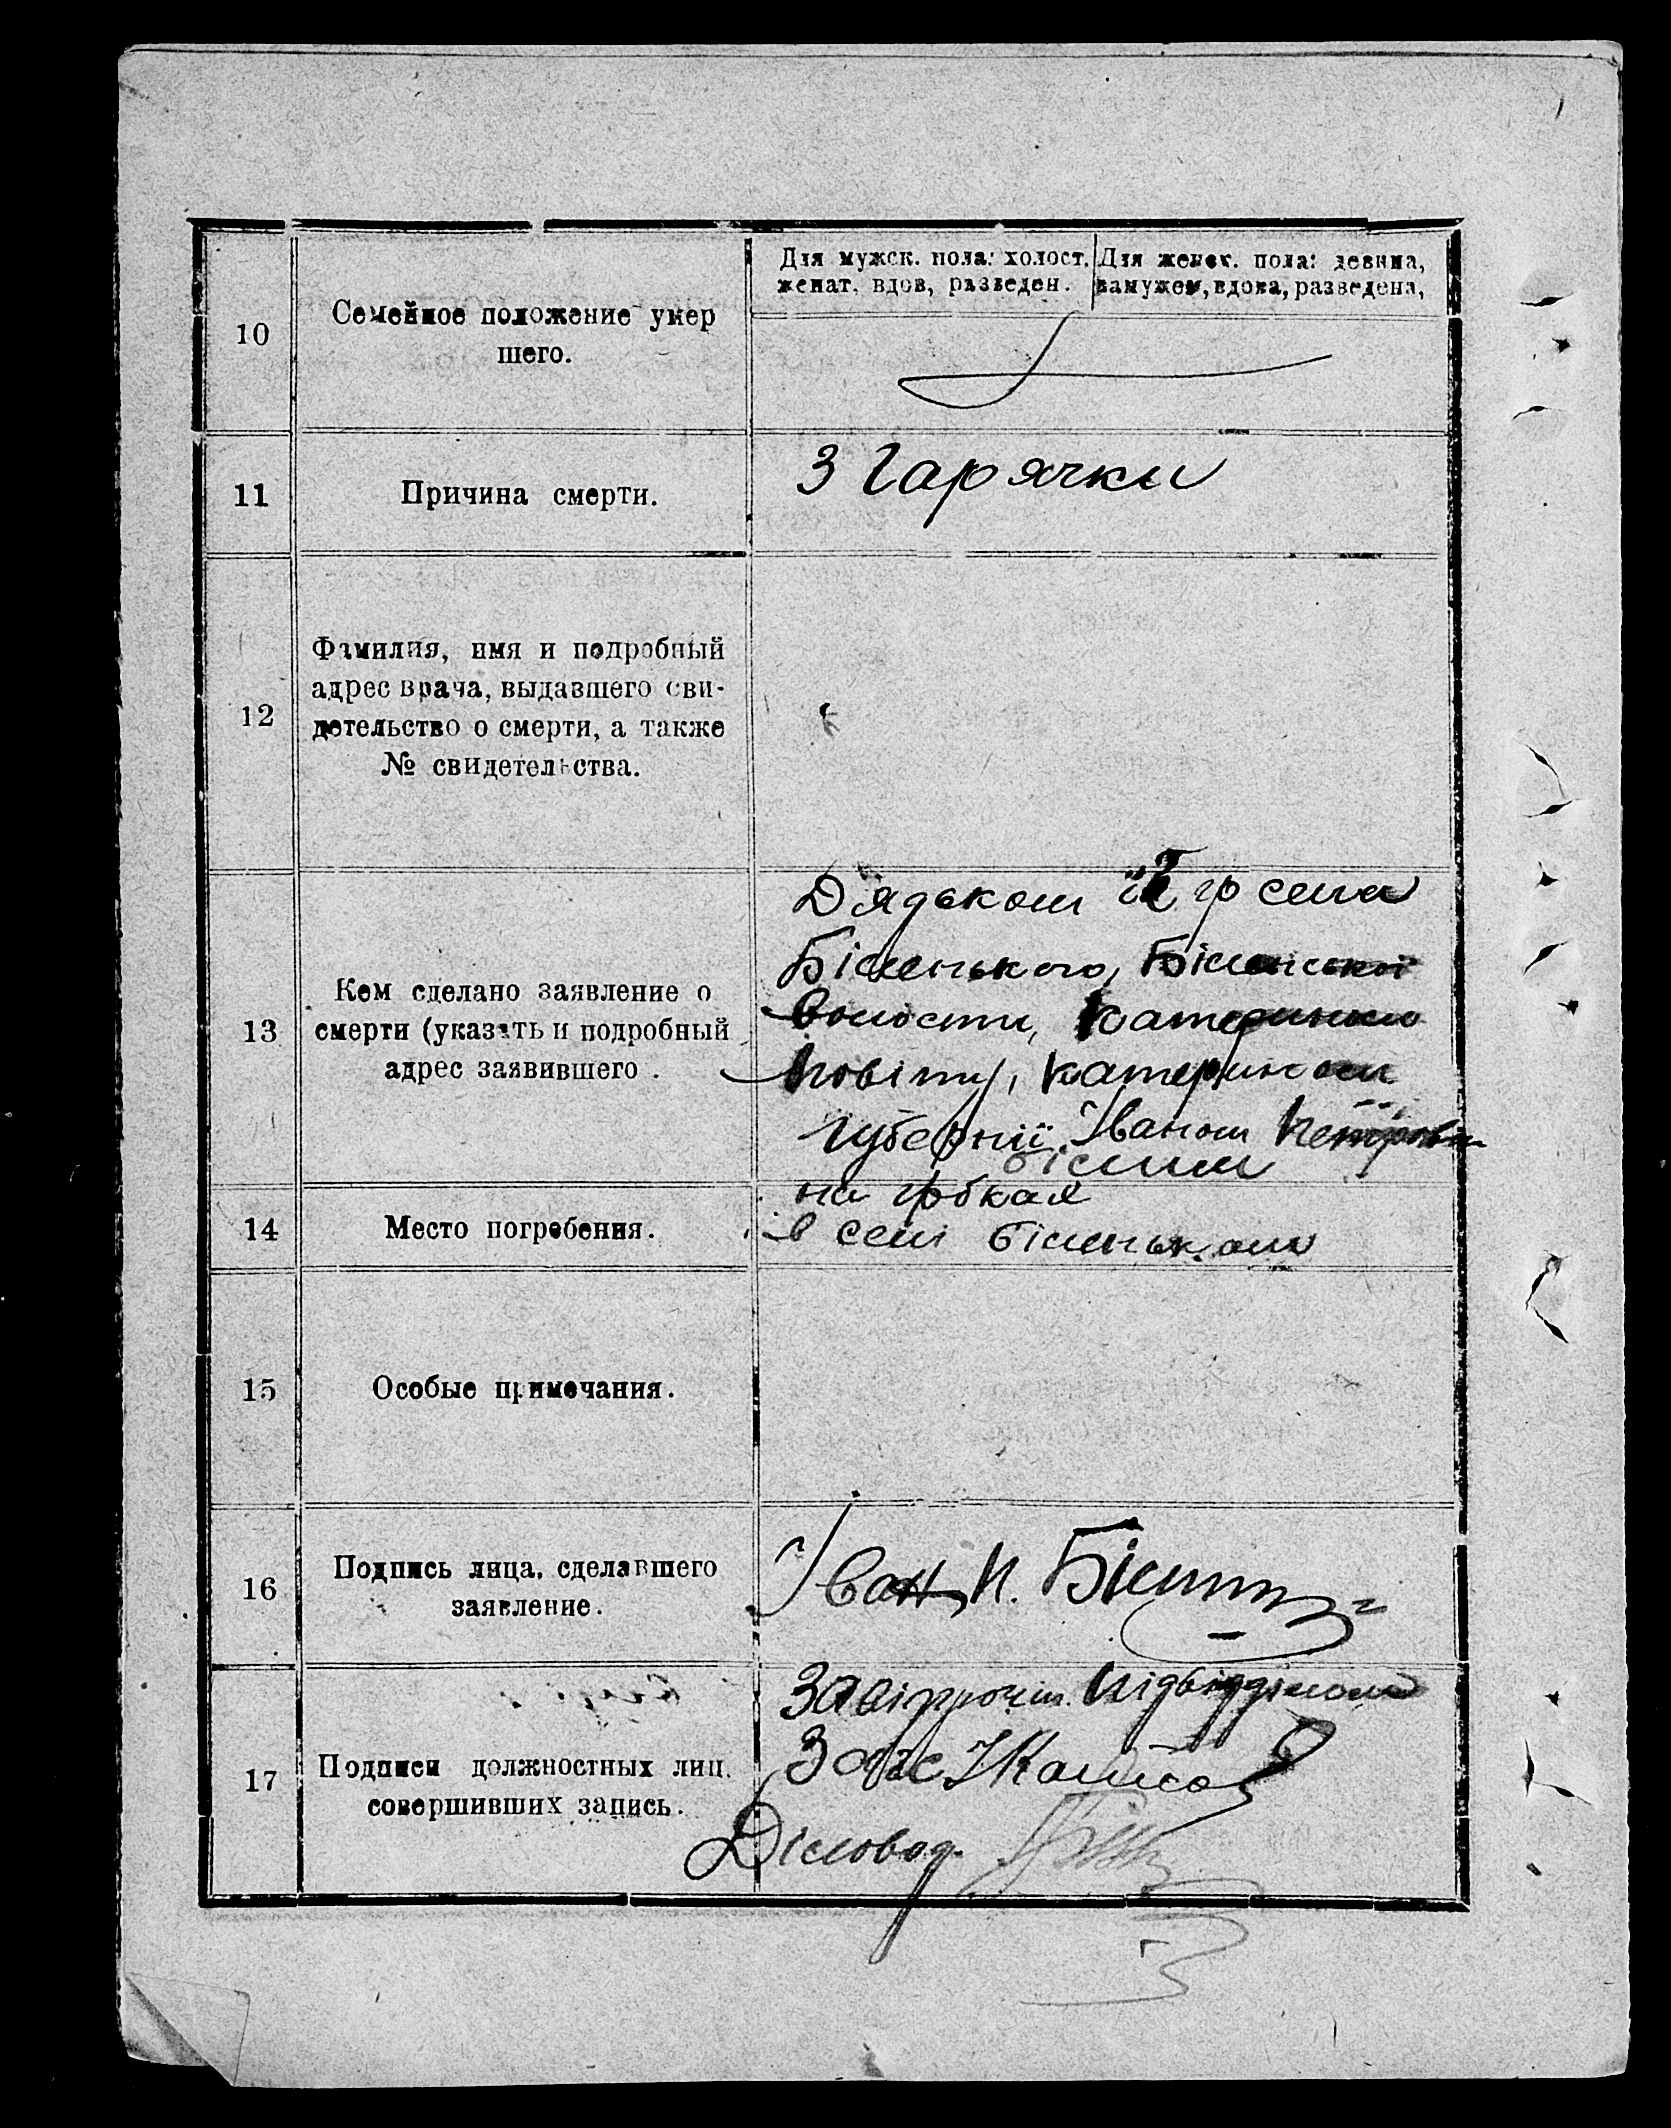 10
Семейное положение умер
шего.
Для мужск. пола: холост.
женат, вдов, разведен.
Для женск. пола: девица,
замужем, вдова, разведена,
11
Причина смерти.
З гарячки
12
Фамилия, имя и подробный
адрес врача, выдавшего сви-
детельство о смерти, а также
№ свидетельства.
13
Кем сделано заявление о
смерти (указать и подробный
адрес заявившего.
Дядьком її гр села
Біленького, Біленської
волости, Катеринос
повіту, Катеринос
губернії Іваном Петрович
Білим
14
Место погребения.
на гробках
в селі Біленьком
15
Особые примечания.
16
Подпись лица, сделавшего
заявление.
Іван П.
17
Подписи должностных лиц.
совершивших запись.
Підвідділом
Загс
Діловод.